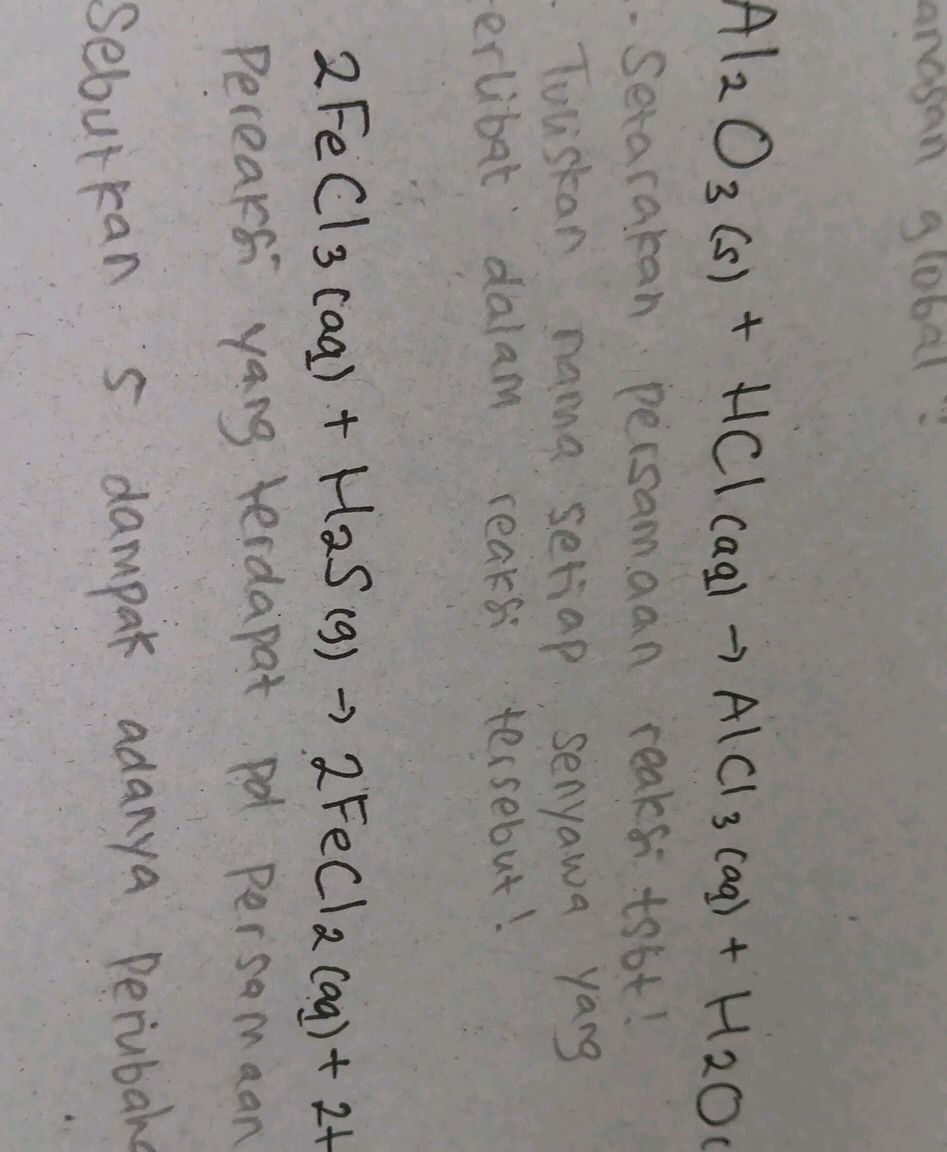 anasan global?
Al2O3(s) + HCl(aq) → AlCl3(aq) + H2O(
- Setarakan persamaan reaksi tsbt!
. Tuliskan nama setiap senyawa yang
erlibat dalam reaksi tersebut!
2FeCl3(aq) + H2S(g) → 2FeCl2(aq) + 2H
Pereaksi yang terdapat pd persamaan
Sebutkan 5 dampak adanya perubaha